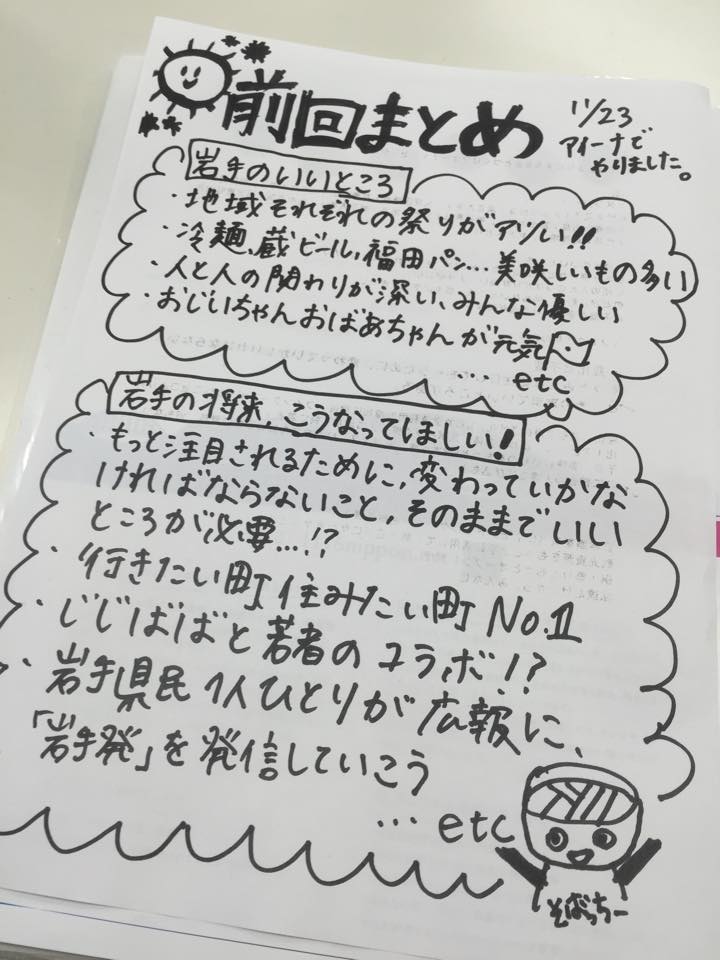 前回まとめ
11/23
アイーナで
やりました。
岩手のいいところ
・地域それぞれの祭りがアツい!!
・冷麺、蔵ビール、福田パン…美味しいもの多い
・人と人の関わりが深い、みんな優しい
・おじいちゃんおばあちゃんが元気
… etc
岩手の将来、こうなってほしい!
・もっと注目されるために、変わっていかな
ければならないこと、そのままでいい
ところが必要…!?
・行きたい町住みたい町 No.1
・じじばばと若者のコラボ!?
・岩手県民1人ひとりが広報に、
「岩手発」を発信していこう
… etc
そばっちー